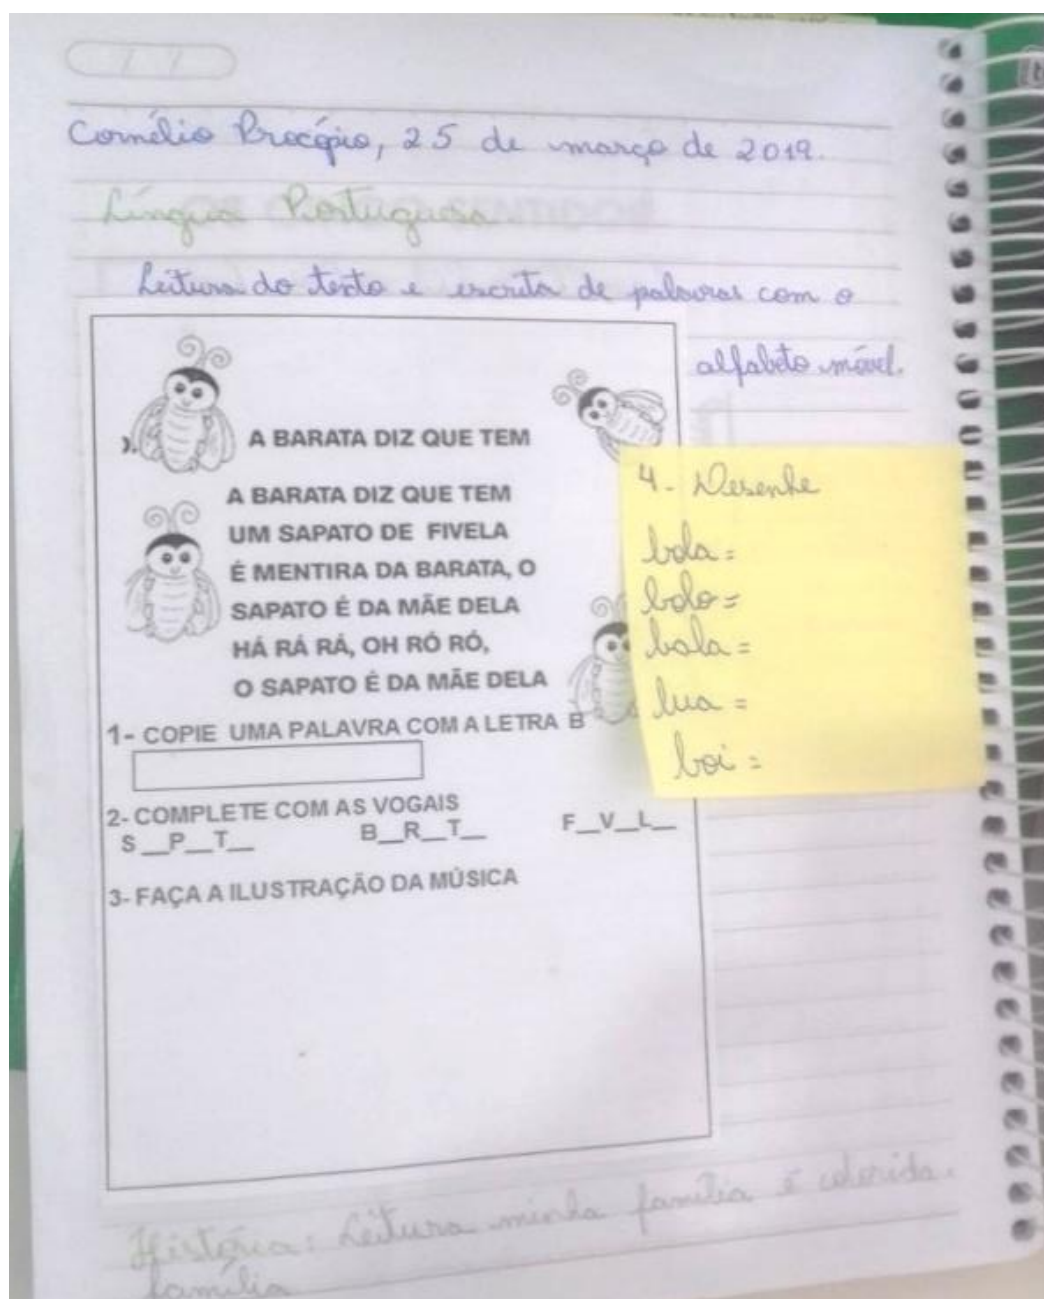 Cornélio Procópio, 25 de março de 2019.
Língua Portuguesa
Leitura do texto e escrita de palavras com o
alfabeto móvel.
A BARATA DIZ QUE TEM
A BARATA DIZ QUE TEM
UM SAPATO DE FIVELA
É MENTIRA DA BARATA, O
SAPATO É DA MÃE DELA
HÁ RÁ RÁ, OH RÓ RÓ,
O SAPATO É DA MÃE DELA
1- COPIE UMA PALAVRA COM A LETRA B
2- COMPLETE COM AS VOGAIS
S__P__T__ B__R__T__ F__V__L__
3- FAÇA A ILUSTRAÇÃO DA MÚSICA
4- Desenhe
bola =
bolo =
bala =
lua =
boi =
História: Leitura minha família é colorida.
família